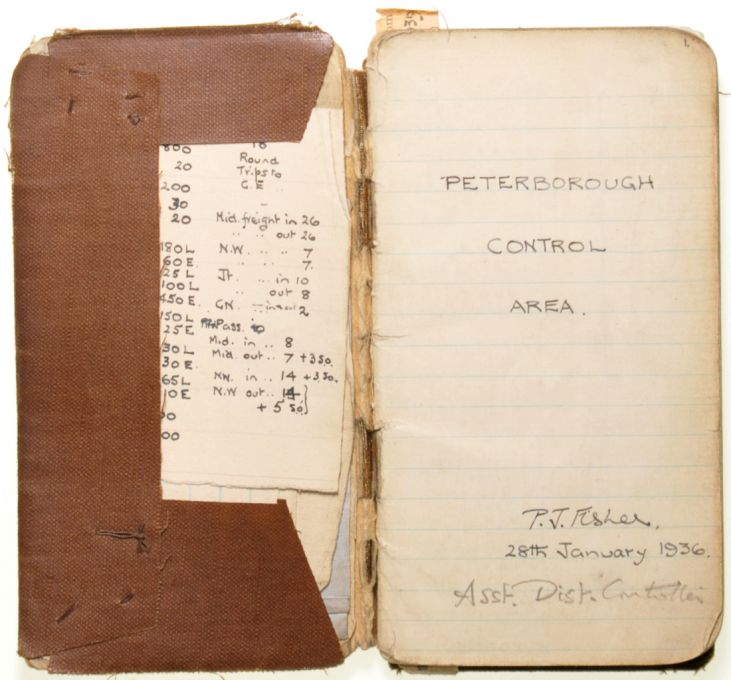 600 18
20 Round
Trips to
200 G.E.
30 -
20 Mid. freight in 26
" " out 26
180L N.W. " " 7
60E. " " 7.
25L Jt. .. in 10
100L " out 8
450E. GN. 2
150L
25E Pass.
Mid. in .. 8
30L Mid. out .. 7 + 3 SO.
30E.
65L NW. in .. 14 + 3 SO.
10E N.W out .. 14
+ 5 SO.
00
00
1.
PETERBOROUGH
CONTROL
AREA.
P.J. Fisher,
28th January 1936.
Asst. Dist. Controller